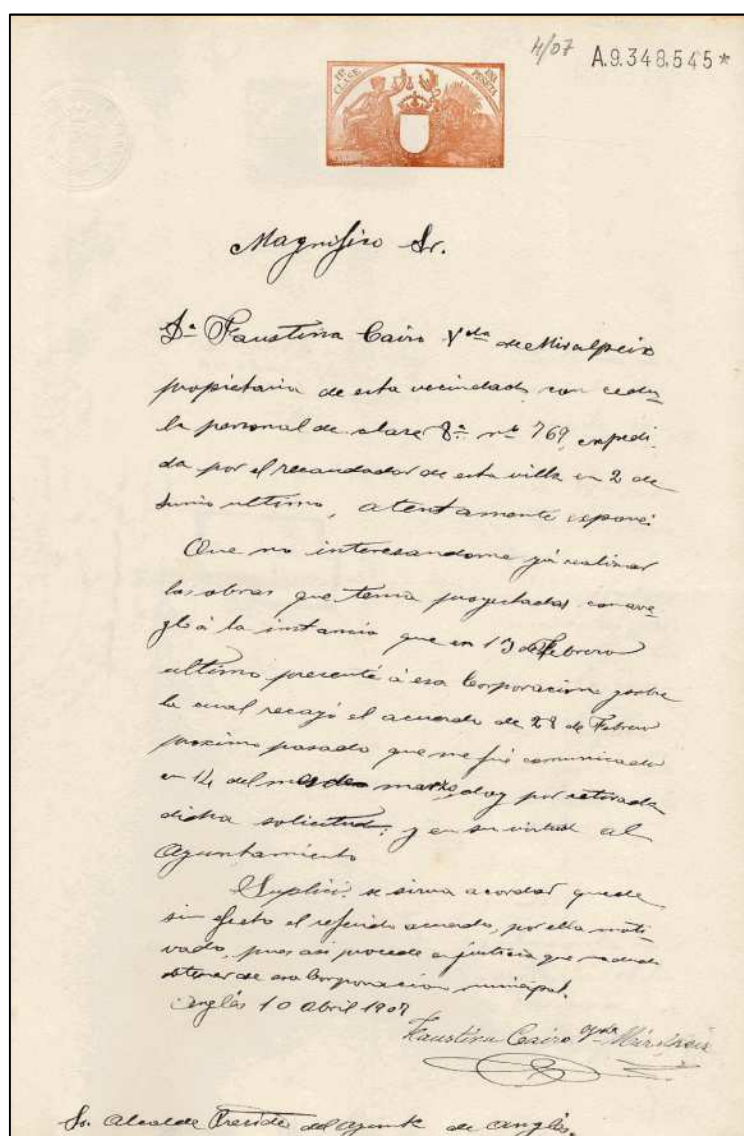 4/07 A.9.348,545*
11ª CLASE UNA PESETA
Magnifico Sr.
Dª Faustina Cairo Vda de Miralpeix
propietaria de esta vecindad, con cedu
la personal de clase 8ª nº 769, expedi
da por el recaudador de esta villa en 2 de
Junio ultimo, atentamente espone:
Que no interesandome yá realizar
las obras que tenia proyectadas con arre
glo á la instancia que en 13 de Febrero
ultimo presenté á esa Corporacion y sobre
la cual recayó el acuerdo de 28 de Febrero
proximo pasado que me fué comunicado
en 14 del mes de marzo, doy por retirada
dicha solicitud; y en su virtud al
Ayuntamiento
Suplica: se sirva acordar quede
sin efecto el referido acuerdo, por ella moti
vado, pues asi procede en justicia que no duda
obtener de esa Corporacion municipal.
Anglés 10 Abril 1907
Faustina Cairo Vda Miralpeix
Sr. Alcalde Presidte del Ayumto de Anglés.